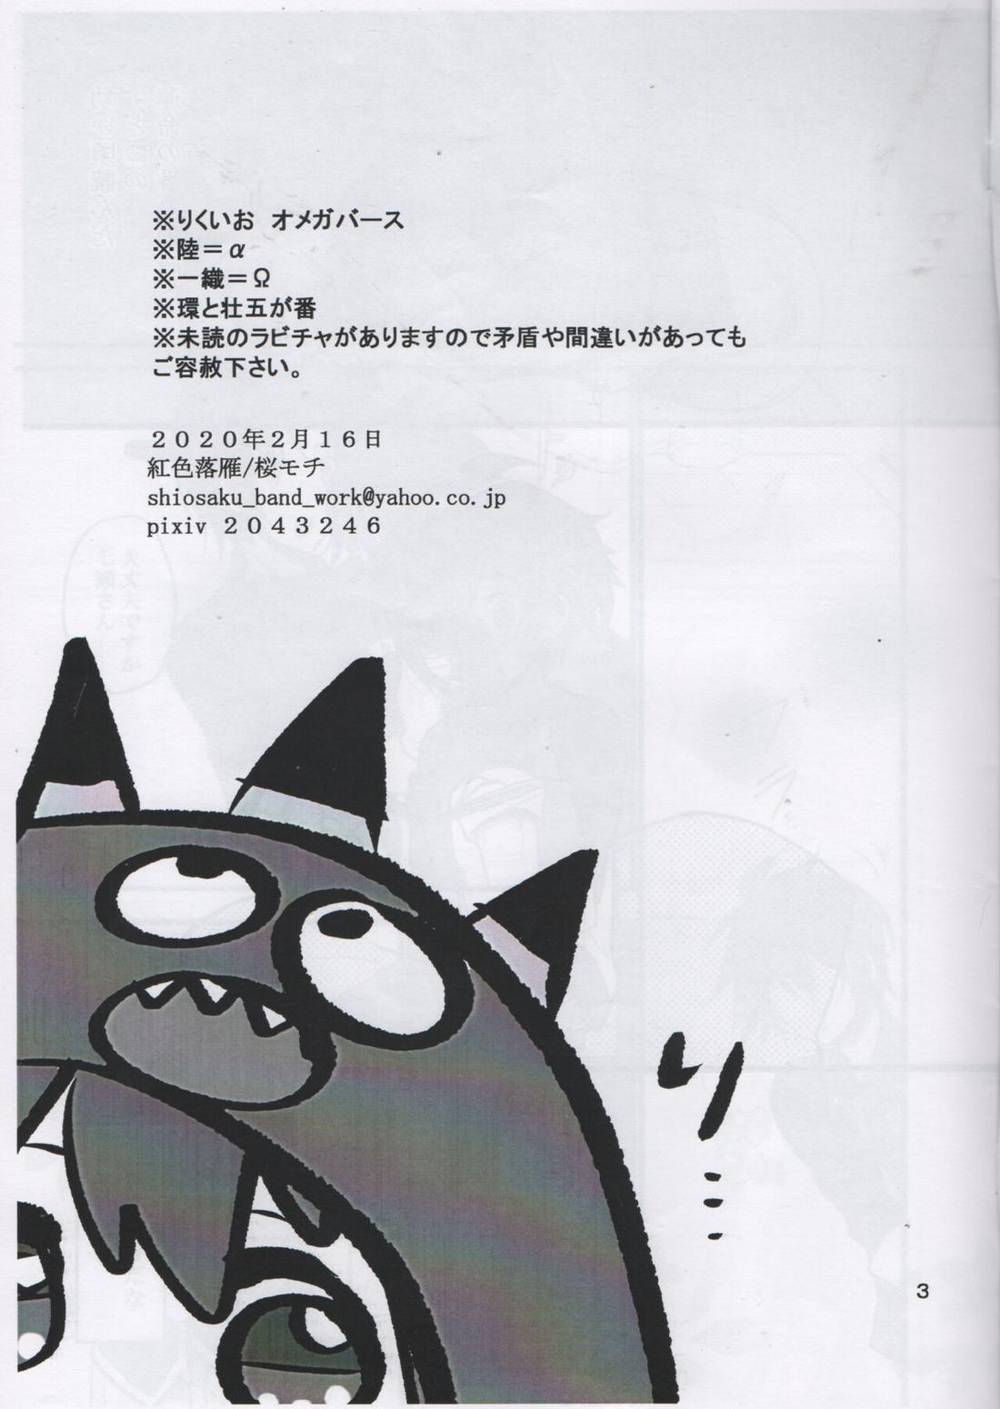 ※りくいお　オメガバース
※陸＝α
※一織＝Ω
※環と壮五が番
※未読のラビチャがありますので矛盾や間違いがあっても
ご容赦下さい。
２０２０年２月１６日
紅色落雁/桜モチ
shiosaku_band_work@yahoo.co.jp
pixiv ２０４３２４６
3